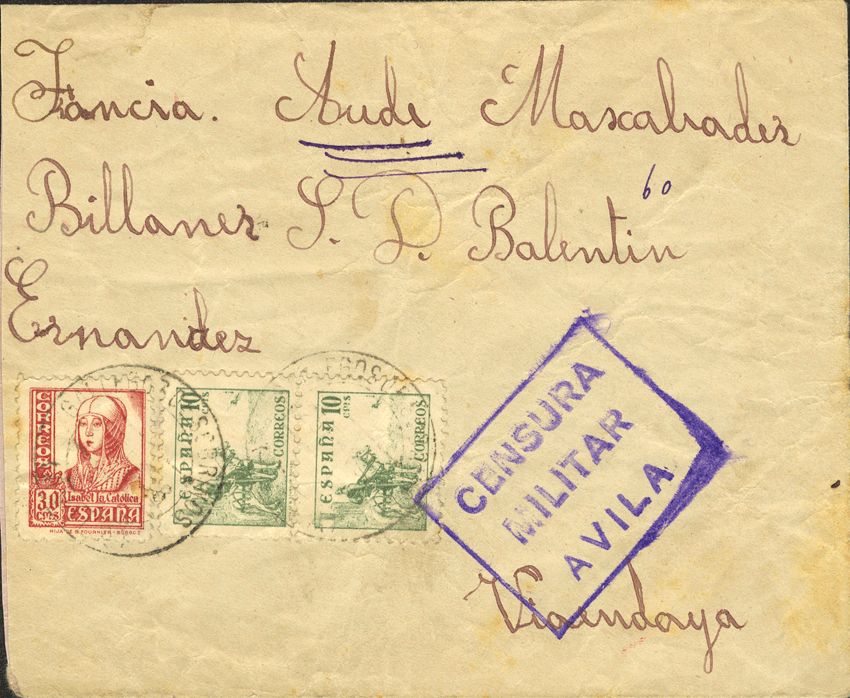 Francia. Aude Mascabades
Billanes S. D. Balentin
60
Ernandez
CORREOS
30
CTMS
Isabel la Catolica
ESPAÑA
HIJA DE B. FOURNIER-BURGOS
ESPAÑA 10 CTMS
CORREOS
ESPAÑA 10 CTMS
CORREOS
CENSURA
MILITAR
AVILA